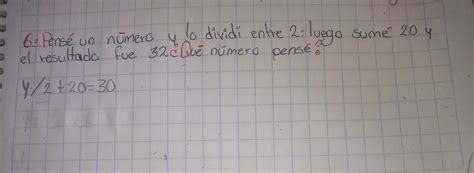 6: Pensé un número y lo dividi entre 2: luego sumé 20 y
el resultado fue 32 ¿Qué número pensé?
y/2+20=30